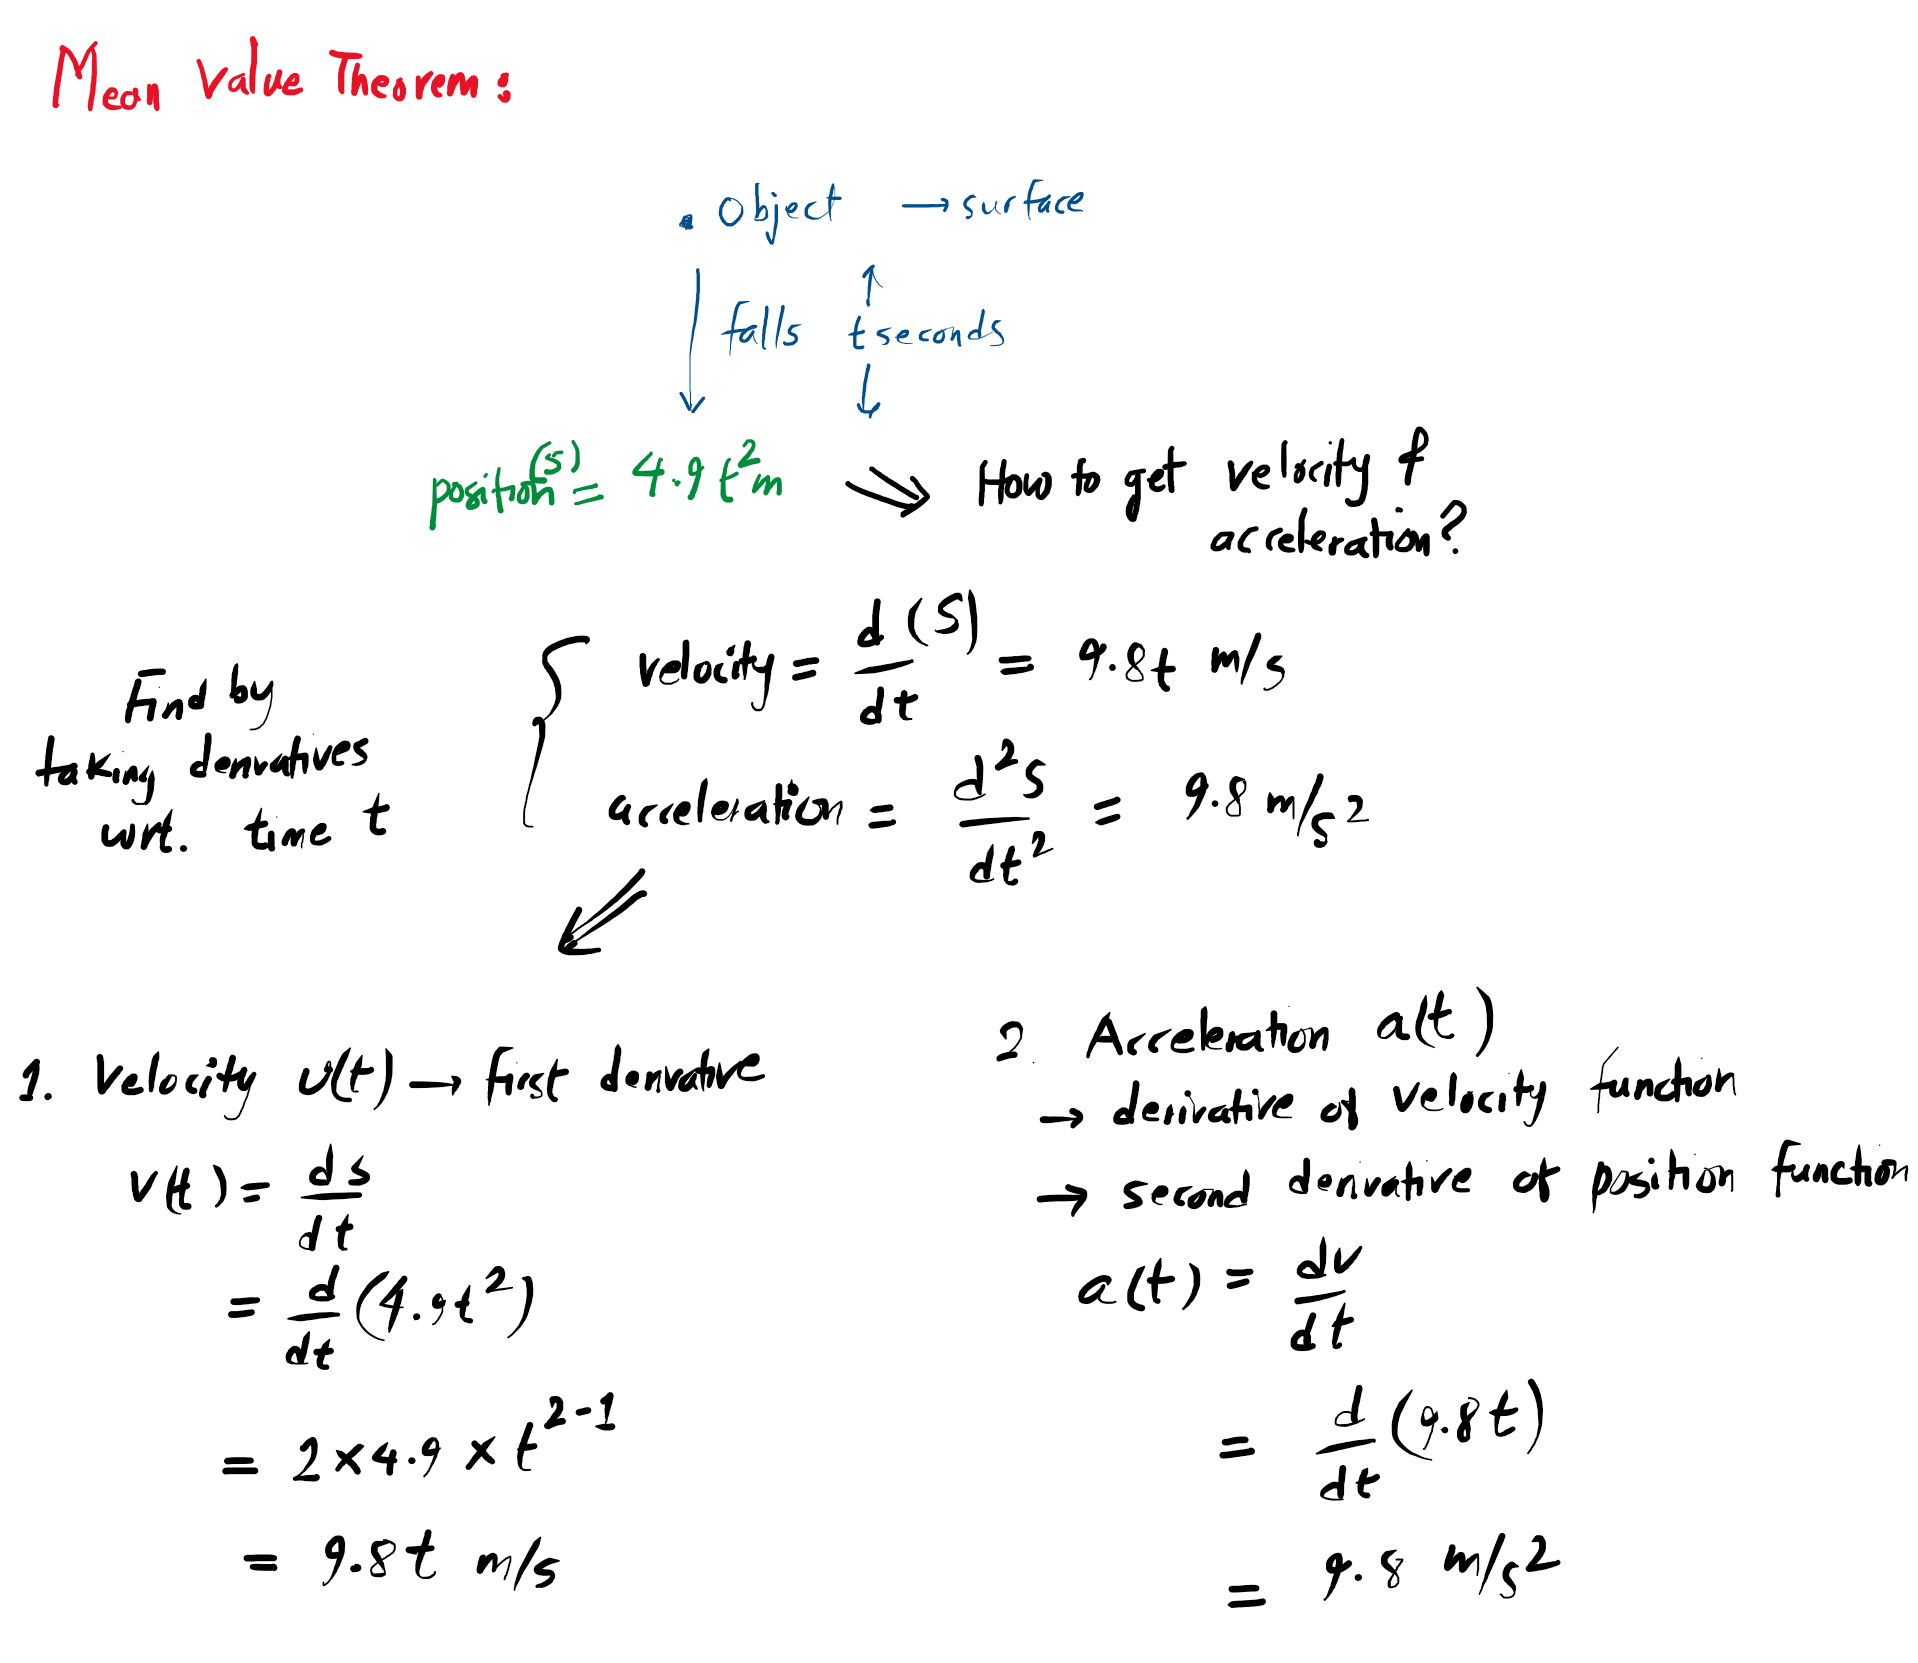 Mean Value Theorem:
. object → surface
↑
falls t seconds
↓
position (s) = 4.9 t² m ⇒ How to get velocity &
acceleration?
Find by
taking derivatives
wrt. time t
velocity = d(S)/dt = 9.8t m/s
acceleration = d²s/dt² = 9.8 m/s²
1. Velocity v(t) → first derivative
v(t) = ds/dt
= d/dt (4.9t²)
= 2 × 4.9 × t^(2-1)
= 9.8t m/s
2. Acceleration a(t)
→ derivative of velocity function
→ second derivative of position function
a(t) = dv/dt
= d/dt (9.8t)
= 9.8 m/s²